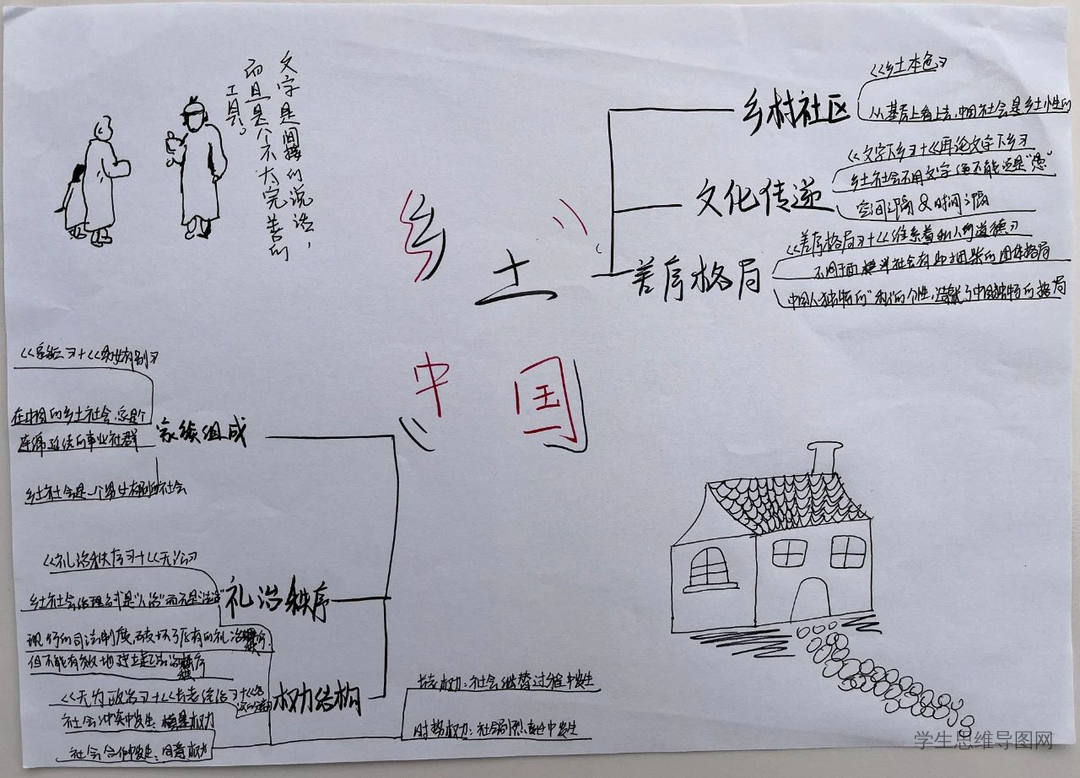 文字是间接的说话，
而且是个不太完善的
工具。
乡土
中国
乡村社区
《乡土本色》
从基层上看上去，中国社会是乡土性的
文化传递
《文字下乡》+《再论文字下乡》
乡土社会不用文字 便不能说是“愚”
空间阻隔 & 时间阻隔
差序格局
《差序格局》+《维系着私人的道德》
不同于西洋社会有如捆柴的团体格局
中国人独特的“私”的个性，造就了中国独特的格局
家族组成
《家族》+《男女有别》
在中国的乡土社会，家是个
连绵延续的事业社群
乡土社会是一个男女有别的社会
礼治秩序
《礼治秩序》+《无讼》
乡土社会治理方式是“人治”而不是法治
现行的司法制度，破坏了原有的礼治秩序，
但不能有效地建立起法治秩序
权力结构
《无为政治》+《长老统治》+
社会冲突中发生：横暴权力
社会合作中发生：同意权力
长老权力：社会继替过程中发生
时势权力：社会剧烈变动中发生
学生思维导图网